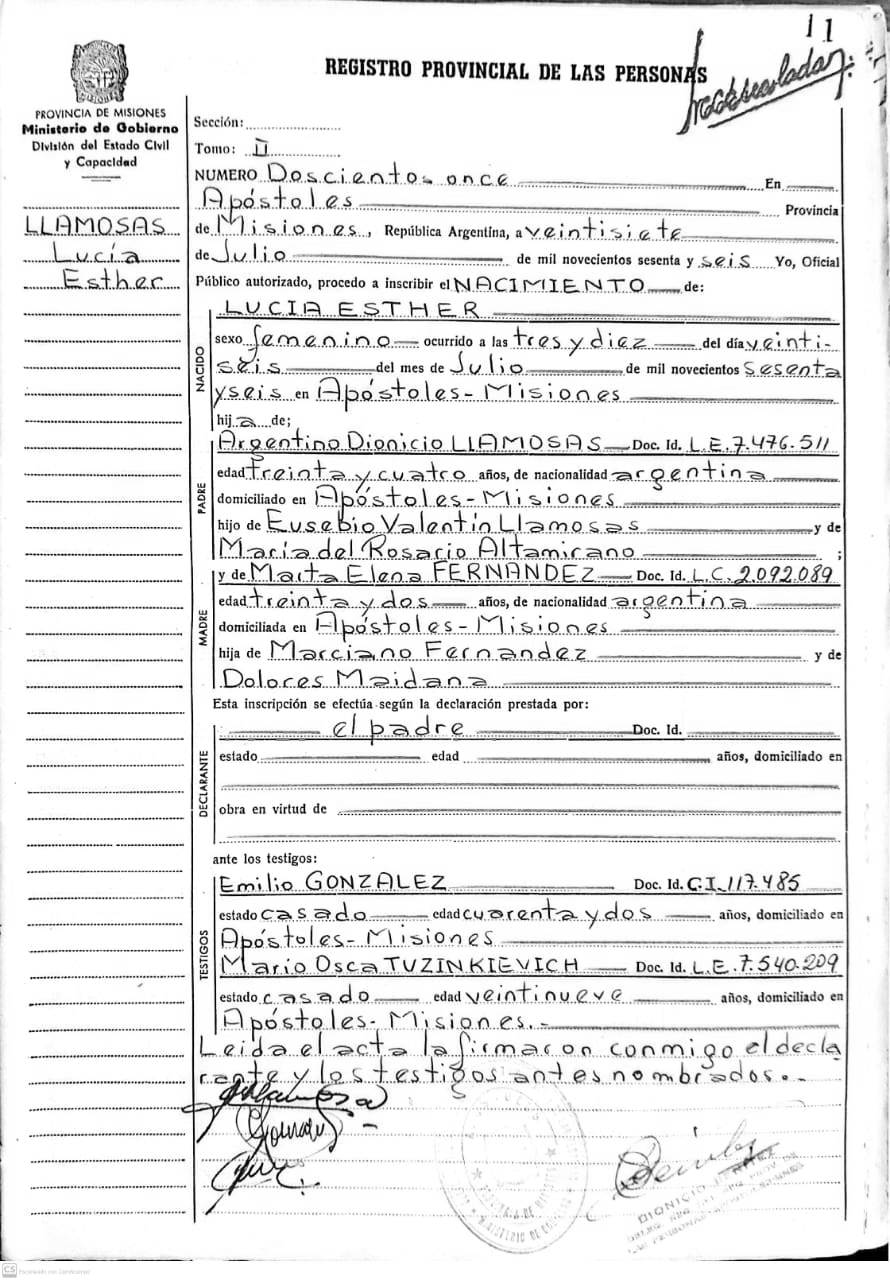 11
REGISTRO PROVINCIAL DE LAS PERSONAS
PROVINCIA DE MISIONES
Ministerio de Gobierno
División del Estado Civil
y Capacidad
LLAMOSAS
Lucía
Esther
Sección:
Tomo: II
NUMERO Doscientos once En
Apóstoles Provincia
de Misiones, República Argentina, a veintisiete
de Julio de mil novecientos sesenta y seis Yo, Oficial
Público autorizado, procedo a inscribir el NACIMIENTO de:
LUCIA ESTHER
NACIDO
sexo femenino ocurrido a las tres y diez del día veinti-
seis del mes de Julio de mil novecientos sesenta
y seis en Apóstoles - Misiones
hija de;
PADRE
Argentino Dionicio LLAMOSAS Doc. Id. L.E. 7.476.511
edad treinta y cuatro años, de nacionalidad argentina
domiciliado en Apóstoles - Misiones
hijo de Eusebio Valentín Llamosas y de
María del Rosario Altamirano ;
MADRE
y de Marta Elena FERNANDEZ Doc. Id. L.C. 2.092.089
edad treinta y dos años, de nacionalidad argentina
domiciliada en Apóstoles - Misiones
hija de Marciano Fernandez y de
Dolores Maidana
Esta inscripción se efectúa según la declaración prestada por:
DECLARANTE
el padre Doc. Id.
estado edad años, domiciliado en
obra en virtud de
ante los testigos:
TESTIGOS
Emilio GONZALEZ Doc. Id. C.I. 117.485
estado casado edad cuarenta y dos años, domiciliado en
Apóstoles - Misiones
Mario Osca TUZINKIEVICH Doc. Id. L.E. 7.540.209
estado casado edad veintinueve años, domiciliado en
Apóstoles - Misiones.-
Leida el acta la firmaron conmigo el decla
rante y los testigos antes nombrados.-
DIONICIO
CS Escaneado con CamScanner